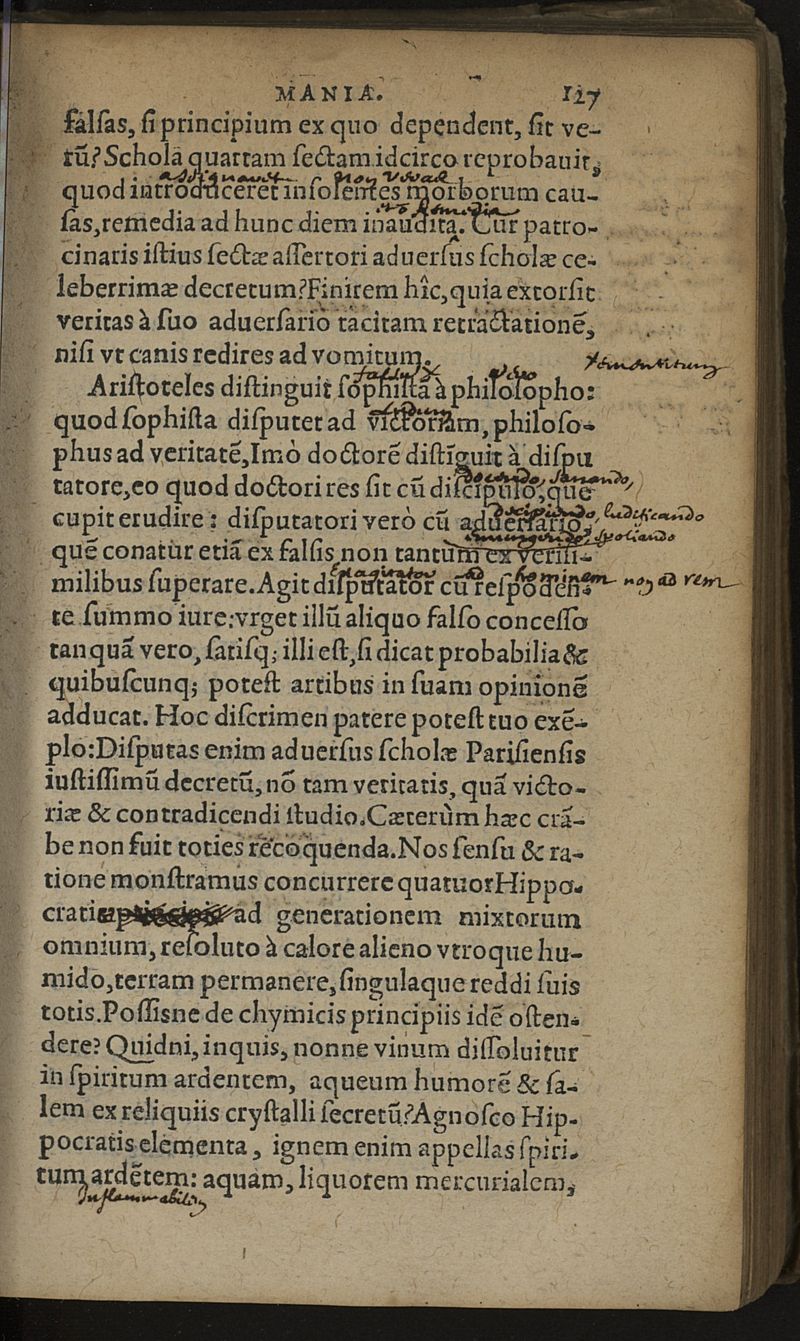 MANIA. 127
falsas, si principium ex quo dependent, sit ve-
rũ? Schola quartam sectam idcirco reprobauit,
assignauit non visas
quod introduceret insolentes morborum cau-
remedia
sas, remedia ad hunc diem inaudita. Cur patro-
cinaris istius sectæ assertori aduersus scholæ ce-
leberrimæ decretum? Finirem hîc, quia extorsit
veritas à suo aduersario tacitam retractationẽ,
nisi vt canis redires ad vomitum.
Aristoteles distinguit sophista à philosopho:
quod sophista disputet ad victoriam, philoso-
phus ad veritatẽ, Imò doctorẽ distĩguit à dispu
docendo, sanando,
tatore, eo quod doctori res sit cũ discipulo, quẽ
decipiendo, ludificando
cupit erudire: disputatori verò cũ aduersario,
spoliando
quẽ conatur etiã ex falsis non tantùm ex verisi-
ad hominem non ad rem
milibus superare. Agit disputator cũ respõden-
te summo iure: vrget illũ aliquo falso concesso
tanquã vero, satisq; illi est, si dicat probabilia &
quibuscunq; potest artibus in suam opinionẽ
adducat. Hoc discrimen patere potest tuo exẽ-
plo: Disputas enim aduersus scholæ Parisiensis
iustissimũ decretũ, nõ tam veritatis, quã victo-
riæ & contradicendi studio. Cæterùm hæc crã-
be non fuit toties recoquenda. Nos sensu & ra-
tione monstramus concurrere quatuor Hippo-
cratis ad generationem mixtorum
omnium, resoluto à calore alieno vtroque hu-
mido, terram permanere, singulaque reddi suis
totis. Possisne de chymicis principiis idẽ osten-
dere? Quidni, inquis, nonne vinum dissoluitur
in spiritum ardentem, aqueum humorẽ & sa-
lem ex reliquiis crystalli secretũ? Agnosco Hip-
pocratis elementa, ignem enim appellas spiri-
tum ardẽtem: aquam, liquorem mercurialem,
Inflammabilem